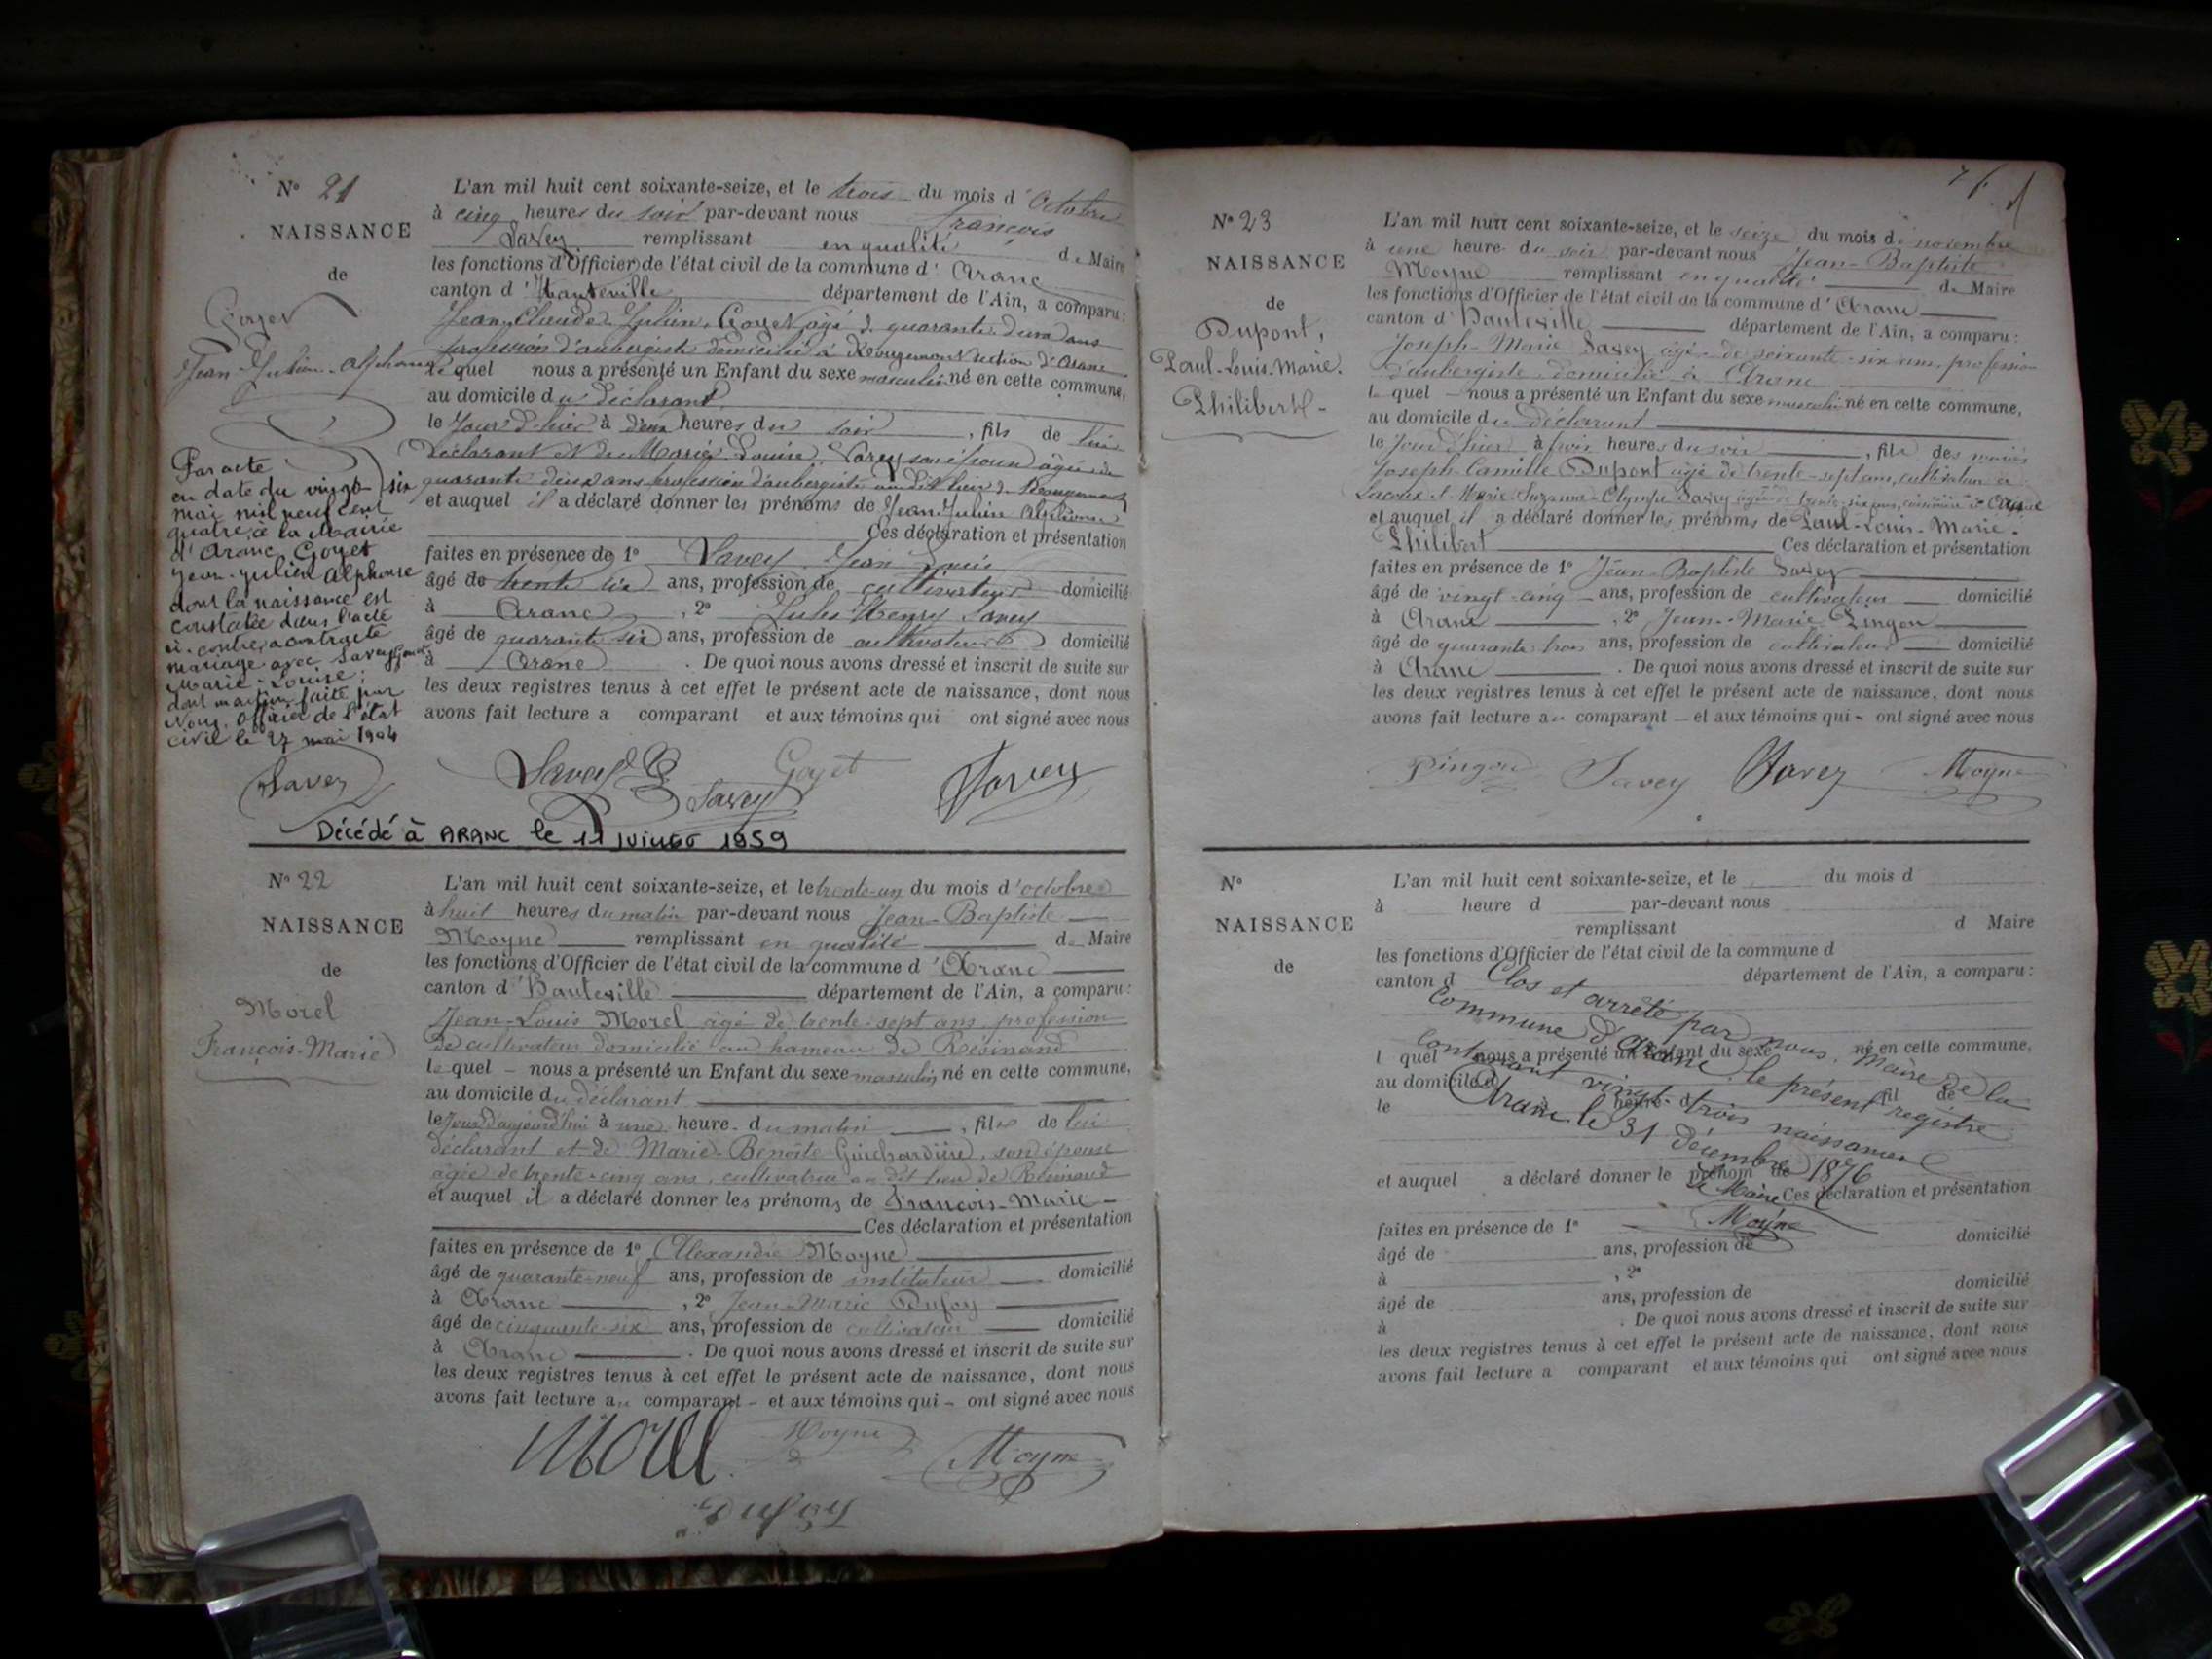 N° 21
NAISSANCE
de
Goyet
Jean-Julien-Alphonse
Par acte
en date du vingt-six
mai mil neuf cent
quatre, à la Mairie
d'Aranc, Goyet
Jean-Julien Alphonse
dont la naissance est
constatée dans l'acte
ci-contre, a contracté
mariage avec Savey
Marie-Louise,
dont mention faite par
Nous, Officier de l'état
civil le 27 mai 1904
Savey
L'an mil huit cent soixante-seize, et le trois du mois d'Octobre
à cinq heures du soir par-devant nous François
Savey remplissant en qualité de Maire
les fonctions d'Officier de l'état civil de la commune d'Aranc
canton d'Hauteville département de l'Ain, a comparu:
Jean-Claude-Julien Goyet âgé de quarante deux ans
profession d'aubergiste domicilié à Rougemont section d'Aranc
lequel nous a présenté un Enfant du sexe masculin né en cette commune,
au domicile du déclarant
le jour d'hier à deux heures du soir, fils de lui
déclarant et de Marie Louise Savey son épouse âgée de
quarante deux ans profession d'aubergiste au dit lieu de Rougemont
et auquel il a déclaré donner les prénoms de Jean Julien Alphonse
Ces déclaration et présentation
faites en présence de 1° Savey Jean Louis
âgé de trente six ans, profession de cultivateur domicilié
à Aranc, 2° Jules Henry Savey
âgé de quarante six ans, profession de cultivateur domicilié
à Aranc. De quoi nous avons dressé et inscrit de suite sur
les deux registres tenus à cet effet le présent acte de naissance, dont nous
avons fait lecture a comparant et aux témoins qui ont signé avec nous
Savey Savey Goyet Savey
Décédé à ARANC le 11 juillet 1959
N° 22
NAISSANCE
de
Morel
François-Marie
L'an mil huit cent soixante-seize, et le trente-un du mois d'octobre
à huit heures du matin par-devant nous Jean-Baptiste
Moyne remplissant en qualité de Maire
les fonctions d'Officier de l'état civil de la commune d'Aranc
canton d'Hauteville département de l'Ain, a comparu:
Jean-Louis Morel âgé de trente-sept ans, profession
de cultivateur domicilié au hameau de Résinand
lequel nous a présenté un Enfant du sexe masculin né en cette commune,
au domicile du déclarant
le jour d'aujourd'hui à une heure du matin, fils de lui
déclarant et de Marie-Benoîte Guichardière, son épouse
âgée de trente-cinq ans, cultivatrice au dit lieu de Résinand
et auquel il a déclaré donner les prénoms de François-Marie
Ces déclaration et présentation
faites en présence de 1° Alexandre Moyne
âgé de quarante-neuf ans, profession de instituteur domicilié
à Aranc, 2° Jean-Marie Dufoy
âgé de cinquante-six ans, profession de cultivateur domicilié
à Aranc. De quoi nous avons dressé et inscrit de suite sur
les deux registres tenus à cet effet le présent acte de naissance, dont nous
avons fait lecture au comparant et aux témoins qui ont signé avec nous
Morel Moyne Moyne
Dufoy
N° 23
NAISSANCE
de
Dupont,
Paul-Louis-Marie-
Philibert
L'an mil huit cent soixante-seize, et le seize du mois de novembre
à une heure du soir par-devant nous Jean-Baptiste
Moyne remplissant en qualité de Maire
les fonctions d'Officier de l'état civil de la commune d'Aranc
canton d'Hauteville département de l'Ain, a comparu:
Joseph-Marie Savey âgé de soixante-six ans, profession
d'aubergiste domicilié à Aranc
lequel nous a présenté un Enfant du sexe masculin né en cette commune,
au domicile du déclarant
le jour d'hier à trois heures du soir, fils des mariés
Joseph-Camille Dupont âgé de trente-sept ans, cultivateur à
Lacoux et Marie-Suzanne-Olympe Savey âgée de trente-six ans, à Aranc
et auquel il a déclaré donner les prénoms de Paul-Louis-Marie-
Philibert Ces déclaration et présentation
faites en présence de 1° Jean-Baptiste Savey
âgé de vingt-cinq ans, profession de cultivateur domicilié
à Aranc, 2° Jean-Marie Pingon
âgé de quarante trois ans, profession de cultivateur domicilié
à Aranc. De quoi nous avons dressé et inscrit de suite sur
les deux registres tenus à cet effet le présent acte de naissance, dont nous
avons fait lecture au comparant et aux témoins qui ont signé avec nous
Pingon Savey Savey Moyne
N°
NAISSANCE
de
L'an mil huit cent soixante-seize, et le du mois d
à heure d par-devant nous
remplissant d Maire
les fonctions d'Officier de l'état civil de la commune d
canton d département de l'Ain, a comparu:
Clos et arrêté par nous, Maire de la
Commune d'Aranc, le présent registre
Contenant vingt-trois naissances
Aranc le 31 décembre 1876
le Maire
Moyne
l quel nous a présenté un Enfant du sexe né en cette commune,
au domicile d
le à heure d fil de
et auquel a déclaré donner le prénom de
Ces déclaration et présentation
faites en présence de 1°
âgé de ans, profession de domicilié
à , 2°
âgé de ans, profession de domicilié
à . De quoi nous avons dressé et inscrit de suite sur
les deux registres tenus à cet effet le présent acte de naissance, dont nous
avons fait lecture a comparant et aux témoins qui ont signé avec nous